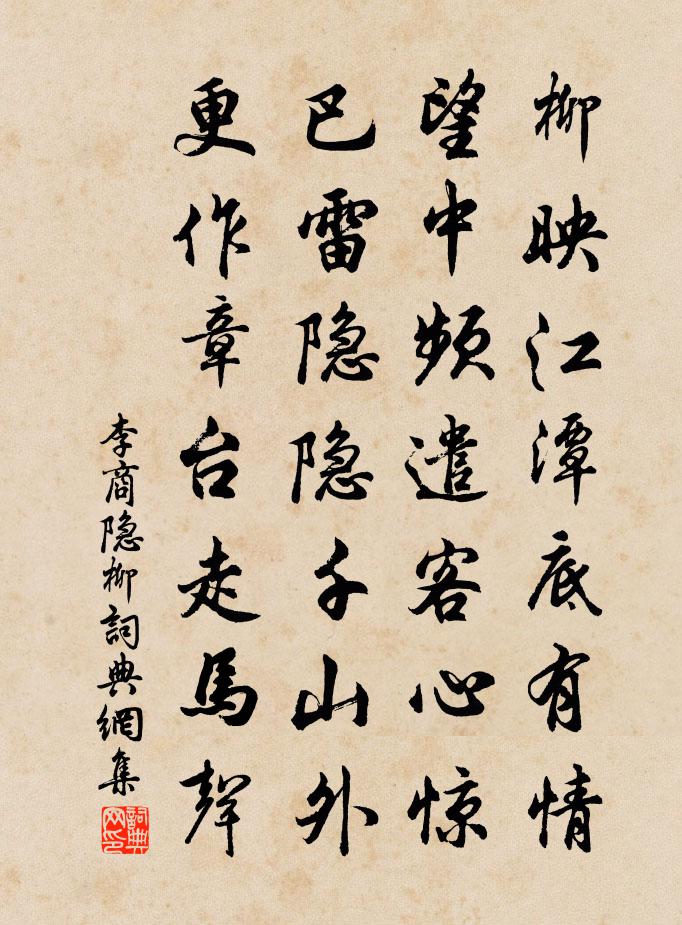 柳映江潭底有情
望中频遣客心惊
巴雷隐隐千山外
更作章台走馬聲
李商隐柳詞典網集
詞典网印